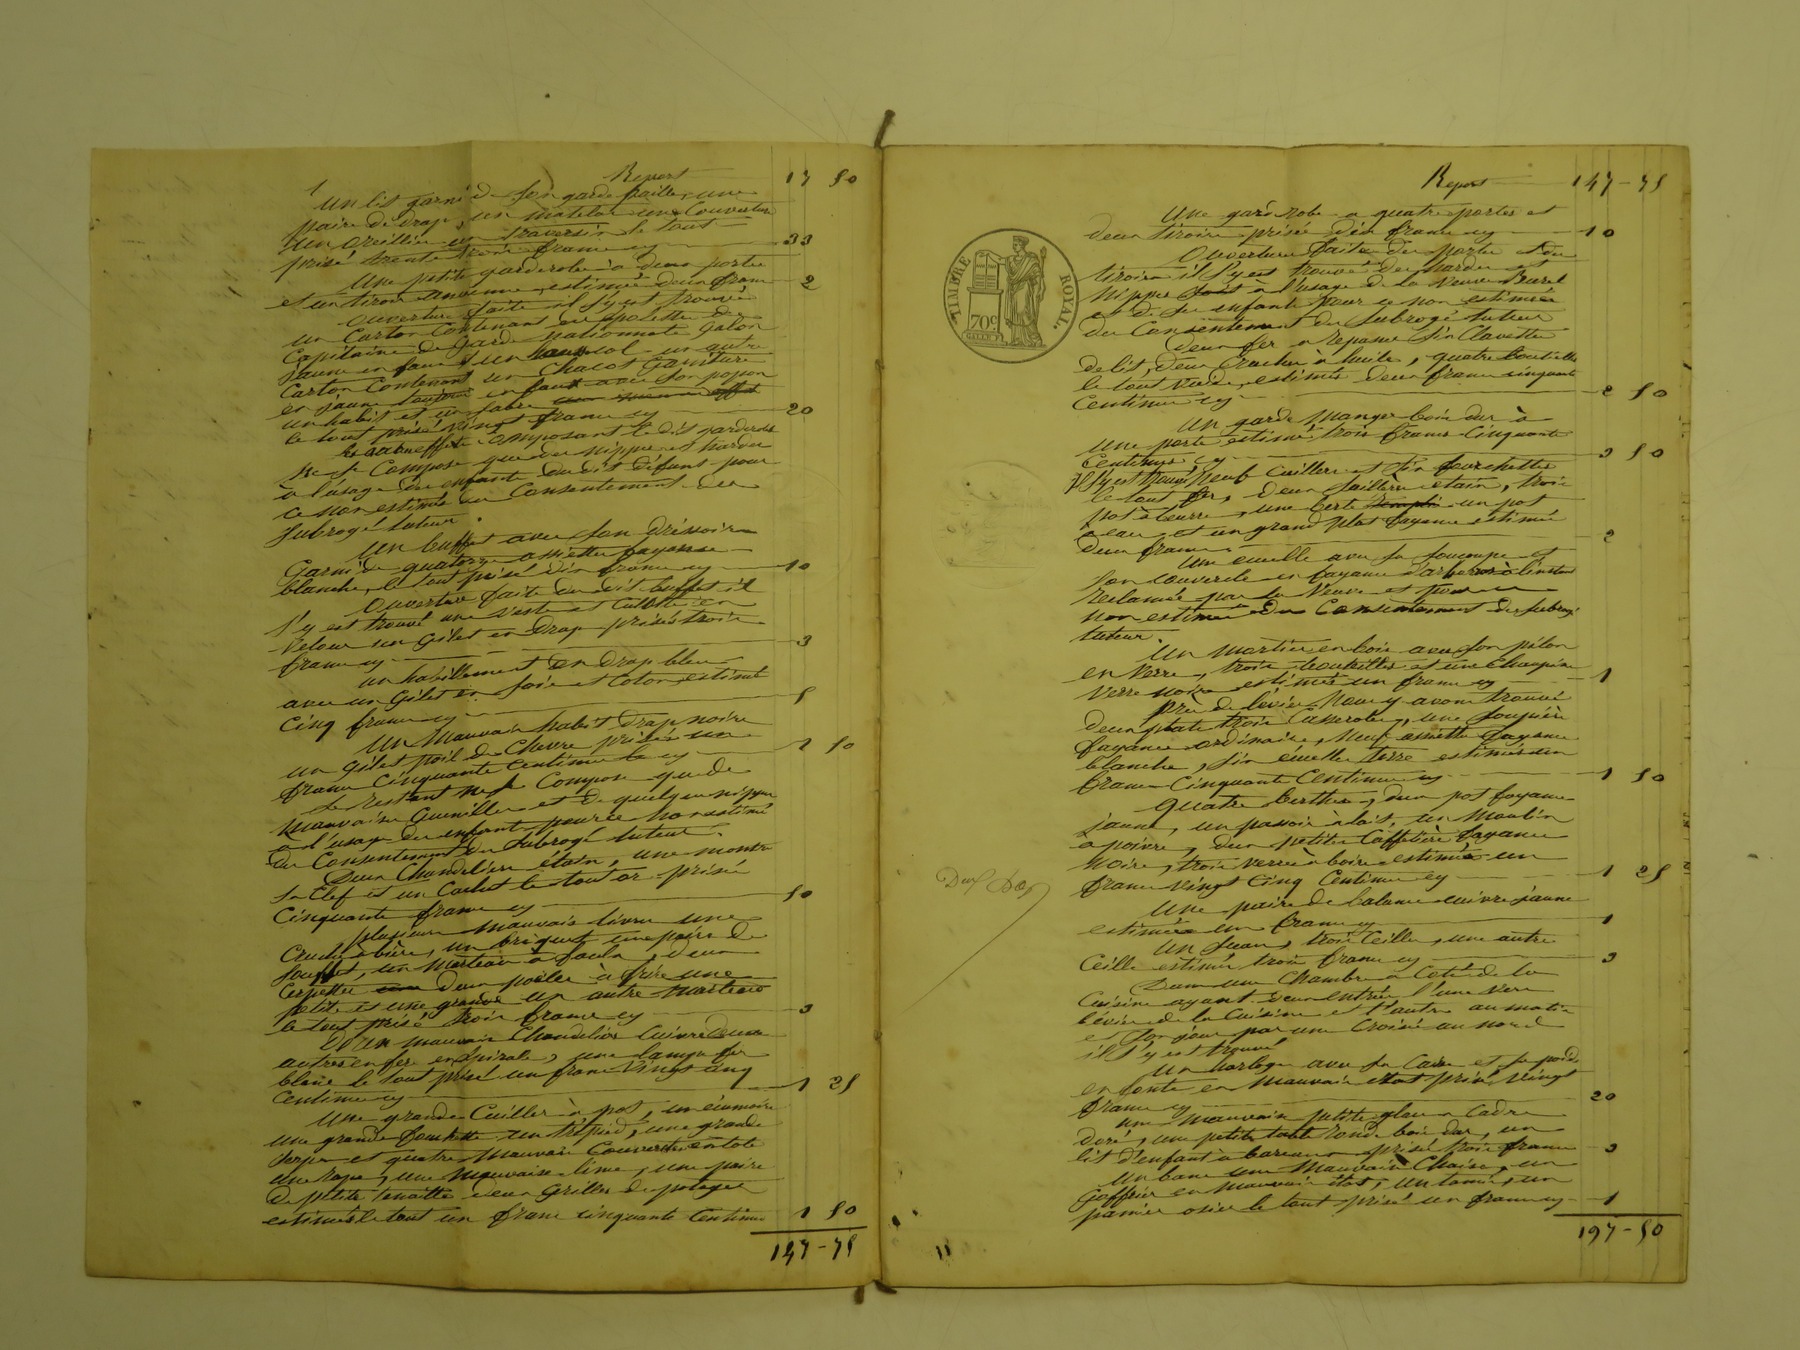 Report 17 50
Un lit garni de son garde paille, une
paire de draps, un matelas une Couverture
un oreillier un traversin le tout
prisé trente trois francs cy 33
Une petite garderobe à deux portes
et un tiroir ancienne estimée deux francs 2
Ouverture faite il s'y est trouvé
un Carton Contenant des épolettes de
Capitaine de Garde nationnale Galon
jaune en faux un hausscol un autre
Carton Contenant un Chacot Garniture
en jaune toujours en faux avec son popon
un habit et un sabre
le tout prisé vingt francs cy 20
Les autres effets Composant le dit garderobe
ne se Compose que des nippes et hardes
à l'usage des enfants du dit défunt pour
ce non estimés du Consentement du
Subrogé tuteur
Un buffet avec son dressoir
Garni de quatorze assiettes fayanse
blanche, le tout prisé dix francs cy 10
Ouverture faite du dit buffet il
s'y est trouvé une veste et Culotte en
Velour un Gilet en Drap prisés trois
francs cy 3
un habillement en Drap bleu
avec un Gilet en soie et Coton estimé
Cinq francs cy 5
Un Mauvais habit Drap noire
un Gilet poil de Chevre prisés un
franc Cinquante Centimes cy 1 50
Le restant ne se Compose que de
Mauvaises Guenilles et de quelques nippes
à l'usage des enfants pour ce non estimé
du Consentement du Subrogé tuteur.
Deux Chandeliers étain, une montre
sa Clef et un Cachet le tout or prisé
Cinquante francs cy 50
plusieurs mauvais livres une
Cruche à bière, un briquet une paire de
soufflet, un marteau à faulx, deux
Cerpettes deux poëles à frire une
petite et une grande un autre Marteau
le tout prisé trois francs cy 3
Un mauvais Chandelier Cuivre deux
autres en fer en Spirale, une lampe fer
blanc le tout prisé un franc Vingt cinq
Centimes cy 1 25
Une grande Cuiller à pot, un écumoire
une grande fourchette un trépied, une grande
et quatre Mauvais Couvercles en tole
une rape, une Mauvaise lime, une paire
de petite tenaille deux Grilles de potager
estimés le tout un franc cinquante Centimes 1 50
147-75
Report 147-75
TIMBRE ROYAL.
70c
Une garde robe a quatre portes et
deux tiroirs prisé dix francs cy 10
Ouverture faite des portes et des
tiroirs il s'y est trouvé des hardes et
nippes à l'usage de la Veuve Burel
et de ses enfants pour ce non estimées
du Consentement du Subrogé tuteur
Deux fer a repasser six Clavettes
de lit, deux Cruches à huile, quatre bouteilles
le tout vuide, estimés deux francs cinquante
Centimes cy 2 50
Un garde Manger bois dur à
une porte estimé trois francs Cinquante
Centimes cy 3 50
Il s'y est trouvé Neuf Cuillers et six fourchettes
le tout fer, deux Saillères étain, trois
pot à beurre, une berte un pot
à eau, et un grand plat fayance estimé
deux francs 2
Une écuelle avec sa soucoupe et
son couvercle en fayance à l'instant
réclamée par la Veuve et pour ce
non estimée du Consentement du Subrogé
tuteur.
Un mortier en bois avec son pilon
en Verre, trois bouteilles et une Chaupine
Verre noire estimés un franc cy 1
Près de l'évier Nous y avons trouvé
deux plats trois Casserolles, une soupière
fayance ordinaire, Neuf assiettes fayance
blanche, six écuelles terre estimés un
franc Cinquante Centimes cy 1 50
Quatre berthes, deux pot fayance
jaune, un passoir à lait, un Moulin
a poivre, deux petites Caffetière fayance
Noire, trois verres à boire estimés un
franc vingt Cinq Centimes cy 1 25
Une paire de balance cuivre jaune
estimée un franc cy 1
Un Seau, trois Ceilles, une autre
Ceille estimés trois francs cy 3
Dans une Chambre à Coté de la
Cuisine ayant deux entrées l'une vers
l'évier de la Cuisine et l'autre au matin
et son jour par une Croisée au nord
il s'y est trouvé
Un horloge avec sa Caisse et ses poids
en fonte en Mauvais état prisé Vingt
francs cy 20
une mauvaise petite glace a Cadre
doré, une petite table ronde bois dur, un
lit d'enfant à bareaux prisé trois francs 3
Un banc une Mauvaise Chaise, un
Gaffrier en Mauvais état, un tamis, un
panier osier le tout prisé un franc cy 1
197-50